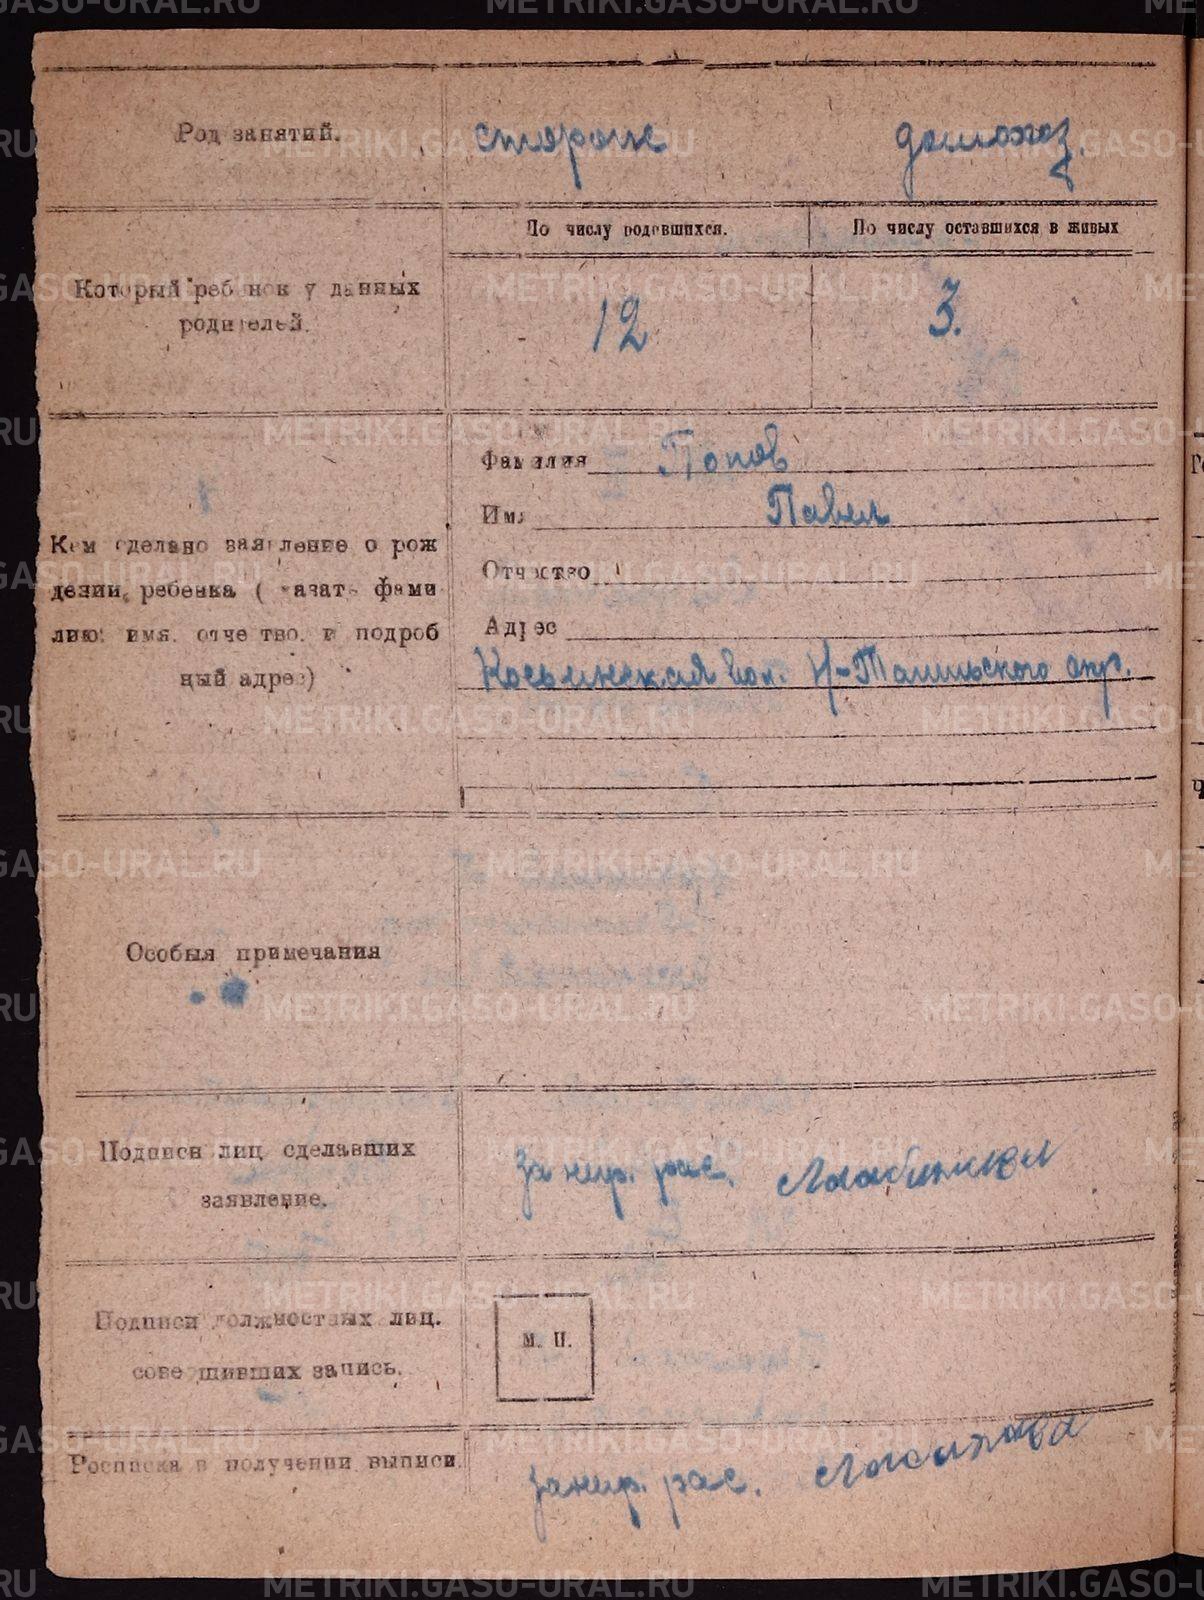 Род занятий.
сторож домохоз.
По числу родившихся. По числу оставшихся в живых
Который ребенок у данных
родителей.
12 3.
Фамилия Попов
Имя Павел
Отчество
Адрес
Косьинская вол. Н-Тагильского окр.
Кем сделано заявление о рож
дении ребенка (указать фами
лию, имя, отчество, и подроб
ный адрес)
Особыя примечания
Подписи лиц сделавших
заявление.
за негр. рас.
Подписи должностных лиц,
совершивших запись.
М. П.
Росписка в получении выписи
за негр. рас.
METRIKI.GASO-URAL.RU